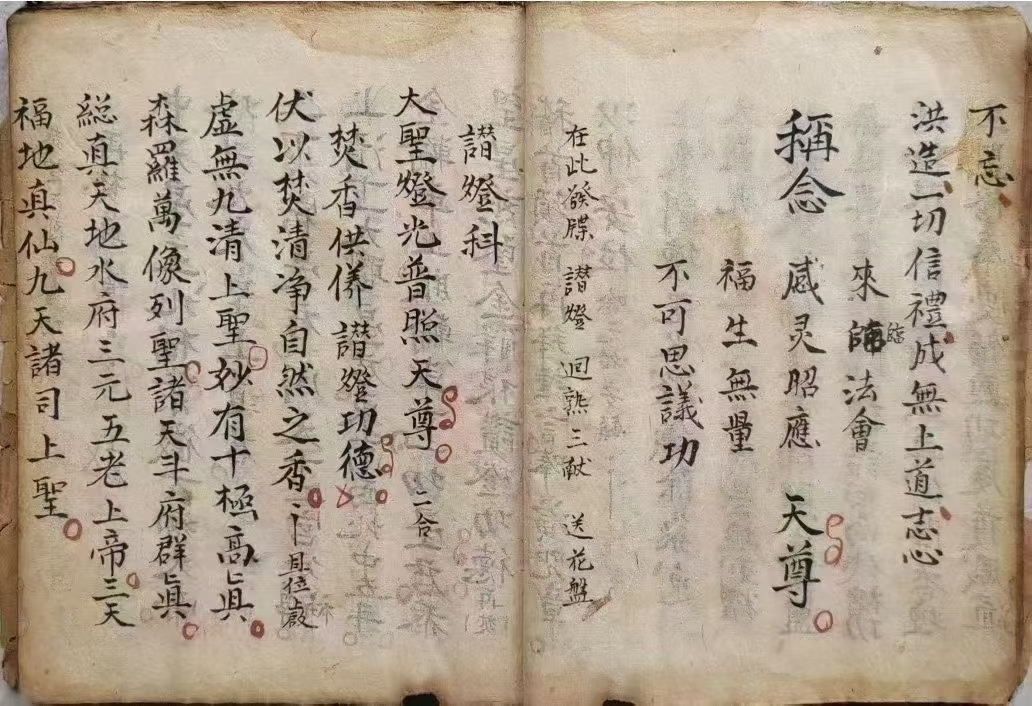 不忘
洪造一切信禮成無上道志心
來臨法會
稱念 感灵昭應 天尊
福生無量
不可思議功
在此發牒 讃燈 迴熟三献 送花盤
讃燈科
大聖燈光普照天尊 二合
焚香供養 讃燈功德
伏以焚清净自然之香 具位啟
虛無九清上聖妙有十極高眞
森羅萬像列聖諸天斗府群眞
総真天地水府三元五老上帝三天
福地真仙九天諸司上聖